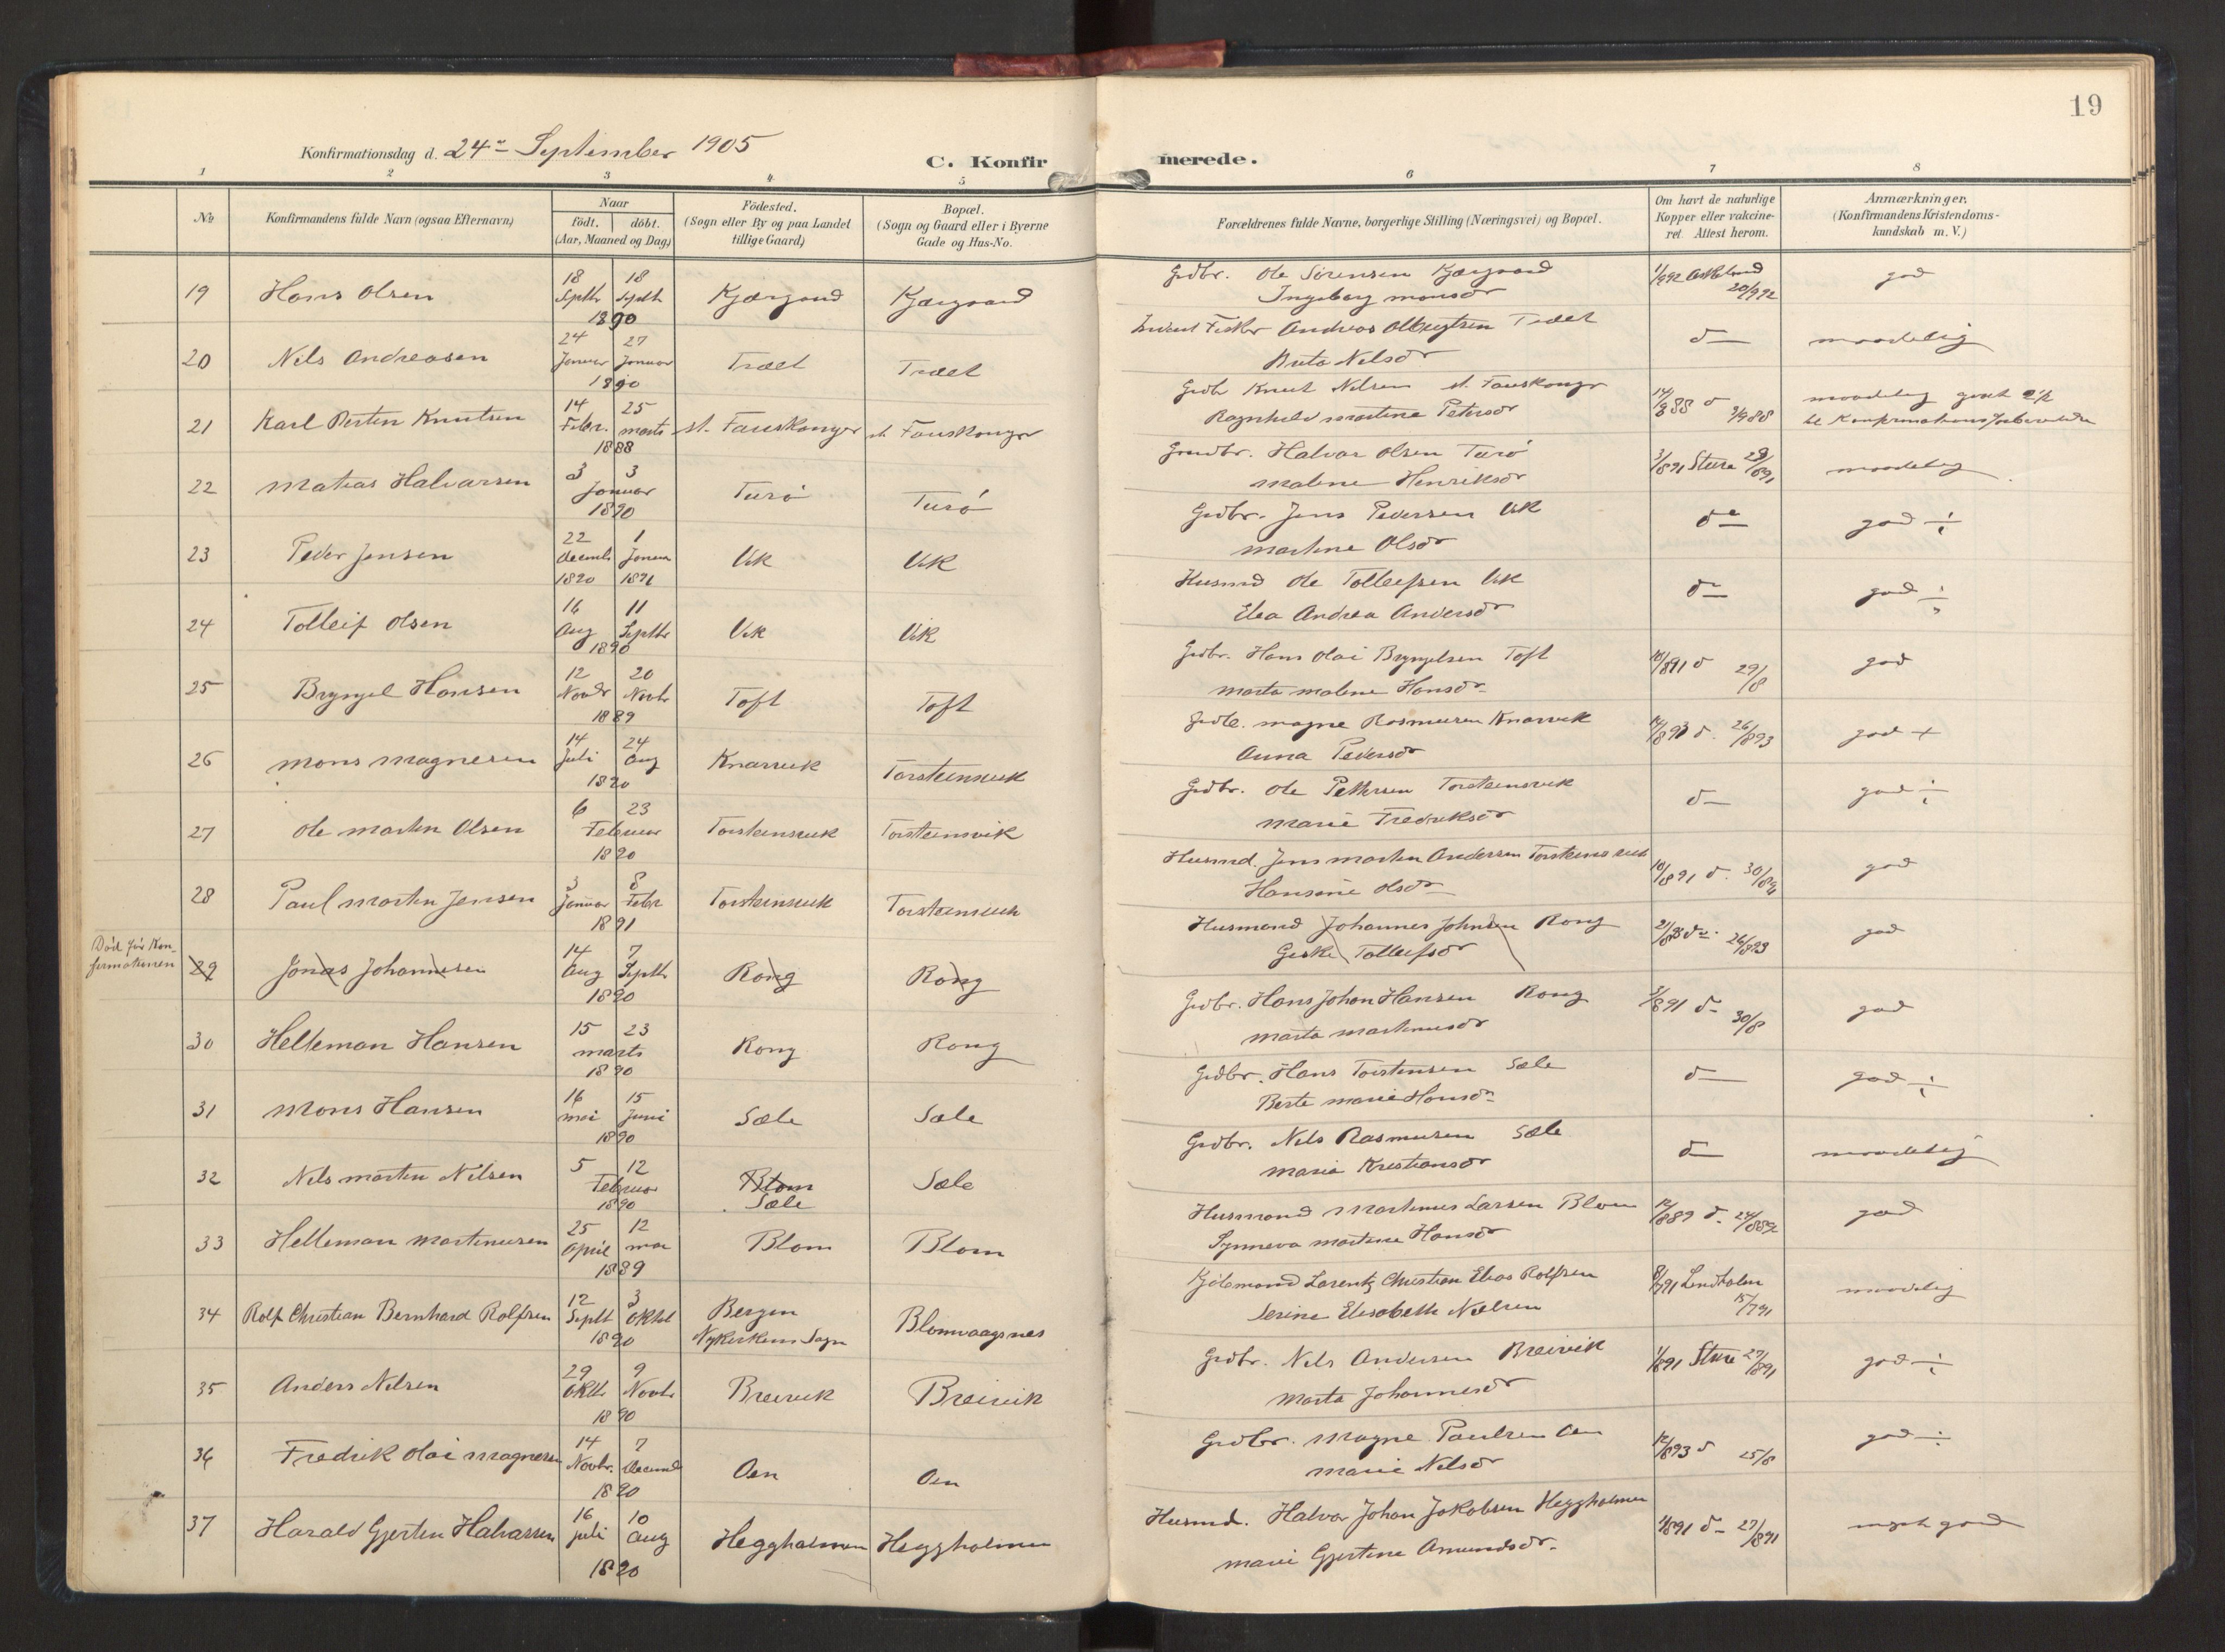 19
Konfirmationsdag d. 24de September 1905
C. Konfirmerede.
1 2 3 4 5 6 7 8
No
Konfirmandens fulde Navn (ogsaa Efternavn)
Naar
födt. döbt.
(Aar, Maaned og Dag)
Födested.
(Sogn eller By og paa Landet
tillige Gaard)
Bopæl.
(Sogn og Gaard eller i Byerne
Gade og Hus-No.
Forældrenes fulde Navne, borgerlige Stilling (Næringsvei) og Bopæl.
Om havt de naturlige
Kopper eller vakcine-
ret Attest herom.
Anmærkninger.
(Konfirmandens Kristendoms-
kundskab m. V.)
19 Hans Olsen 18 Septbr 18 Septb 1890 Kjærgaard Kjærgaard Grdbr. Ole Sörensen Kjærgaard
Ingeborg Monsdr 1/9 92 20/9 92 god
20 Nils Andreasen 24 Januar 27 Januar 1890 Træet Træet Fisker Andreas Træet
Nelsdr d— maadelig
21 Karl Knutsen 14 Febr. 25 marts 1888 st. Fauskanger st. Fauskanger Grdb Knut Nilsen st. Fauskanger
Ragnhild Martine Petersdr maadelig
22 Matias Halvarsen 3 3 Januar 1890 Turö Turö Grundbr. Halvar Olsen Turö
Malene Henriksdr 3/8 91 Sture maadelig
23 Peder Jensen 22 decemb 1890 1 Januar 1891 Vik Vik Grdbr. Jens Pedersen Vik
Martine Olsdr do god ÷
24 Tolleif Olsen 16 Aug 11 Septbr 1890 Vik Vik Husmd Ole Tollefsen Vik
Elea Andrea Andersdr do god ÷
25 Bryngel Hansen 12 Novbr 20 Novbr 1889 Toft Toft Grdbr. Hans Olai Bryngelsen Toft
Marta Malene Hansdr 10/8 91 d 29/8 god
26 Mons Magnesen 14 Juli 24 Aug 1890 Knarrvik Torsteinsvik Grdb. Magne Rasmusen Knarvik
Anna Pedersdr 14/8 93 d. 26/8 93 god +
27 Ole Martin Olsen 6 23 Februar 1890 Torsteinsvik Torsteinsvik Grdbr. Ole Pettersen Torsteinsvik
Marie Fredriksdr d— god ÷
28 Paul Martin Jensen 3 Januar 8 Febr 1891 Torsteinsvik Torsteinsvik Husmd. Jens Martin Andersen Torsteinsvik
Hansine Olsdr 10/8 91 d. 30/8 91 god
Död för Kon-
firmationen
29 Jonas Johannesen 14 Aug 7 Septbr 1890 Rong Rong Husmand Johannes Johnsen Rong
Geske Tollefsdr 26/8 93 god
30 Helleman Hansen 15 23 marts 1890 Rong Rong Grdbr. Hans Johan Hansen Rong
Marta Martinusdr 3/8 91 d— 30/8 god
31 Mons Hansen 16 mai 15 Juni 1890 Sæle Sæle Grdbr. Hans Torstensen Sæle
Berte Marie Hansdr d— god ÷
32 Nils Martin Nilsen 5 12 Februar 1890 Blom
Sæle Sæle Grdbr. Nils Rasmusen Sæle
Maria Kristiansdr d— maadelig
33 Helleman Martinusen 25 April 12 mai 1889 Blom Blom Husmand Martinus Larsen Blom
Synneva Martine Hansdr 12/8 89 d. god
34 Rolf Christian Bernhard Rolfsen 12 Septb 3 Oktob 1890 Bergen
Nykirkens Sogn Blomvaagsnes Kjöbmand Lorentz Christian Elias Rolfsen
Serine Elisabeth Nielsen 8/7 91 Lindholm 15/7 91 maadelig
35 Anders Nilsen 29 Oktb 9 Novb 1890 Breivik Breivik Grdbr. Nils Andersen Breivik
Marta Johannesdr 1/8 91 Sture 27/8 91 god ÷
36 Fredrik Olai Magnesen 14 Novbr. 7 Decemb 1890 Oen Oen Grdbr. Magne Paulsen Oen
Marie Nilsdr 12/8 93 d 25/8 god ÷
37 Harald Gjertin Halvarsen 16 Juli 10 Aug 1890 Heggholmen Heggholmen Husmd. Halvor Johan Jakobsen Heggholmen
Marie Gjertine Amundsdr. 1/8 91 d— 27/8 91 meget god